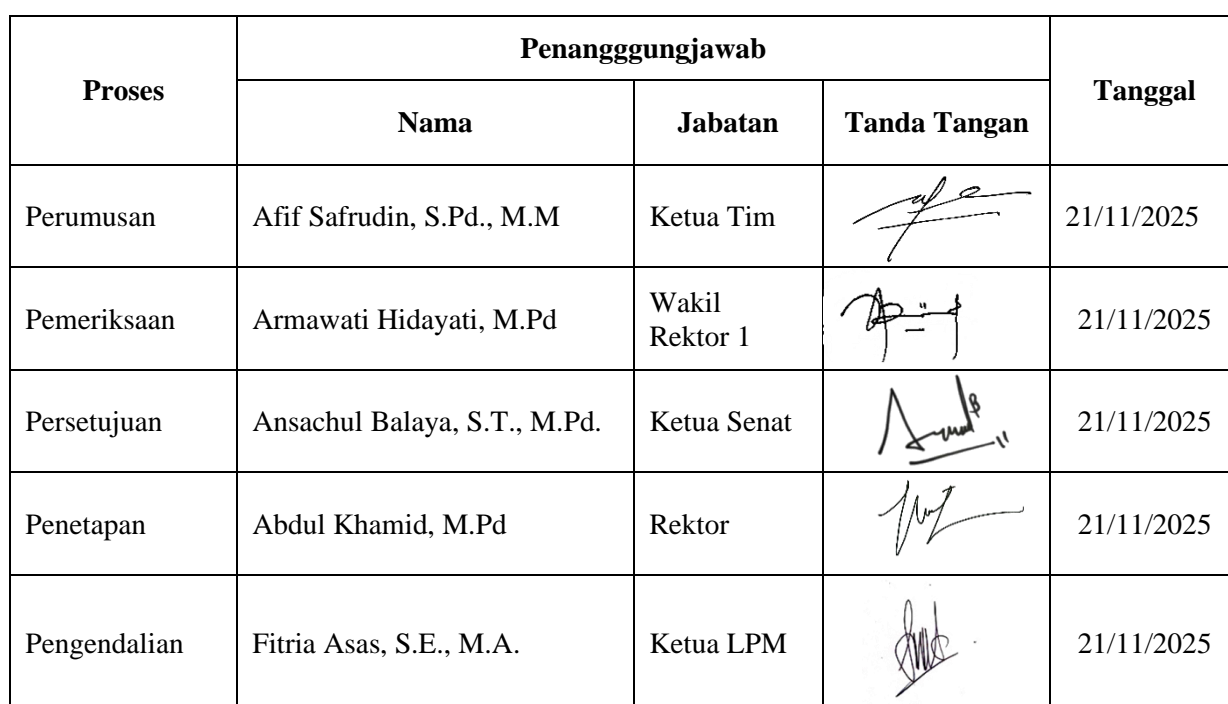 Proses
Penangggungjawab
Tanggal
Nama
Jabatan
Tanda Tangan
Perumusan
Afif Safrudin, S.Pd., M.M
Ketua Tim
21/11/2025
Pemeriksaan
Armawati Hidayati, M.Pd
Wakil
Rektor 1
21/11/2025
Persetujuan
Ansachul Balaya, S.T., M.Pd.
Ketua Senat
21/11/2025
Penetapan
Abdul Khamid, M.Pd
Rektor
21/11/2025
Pengendalian
Fitria Asas, S.E., M.A.
Ketua LPM
21/11/2025